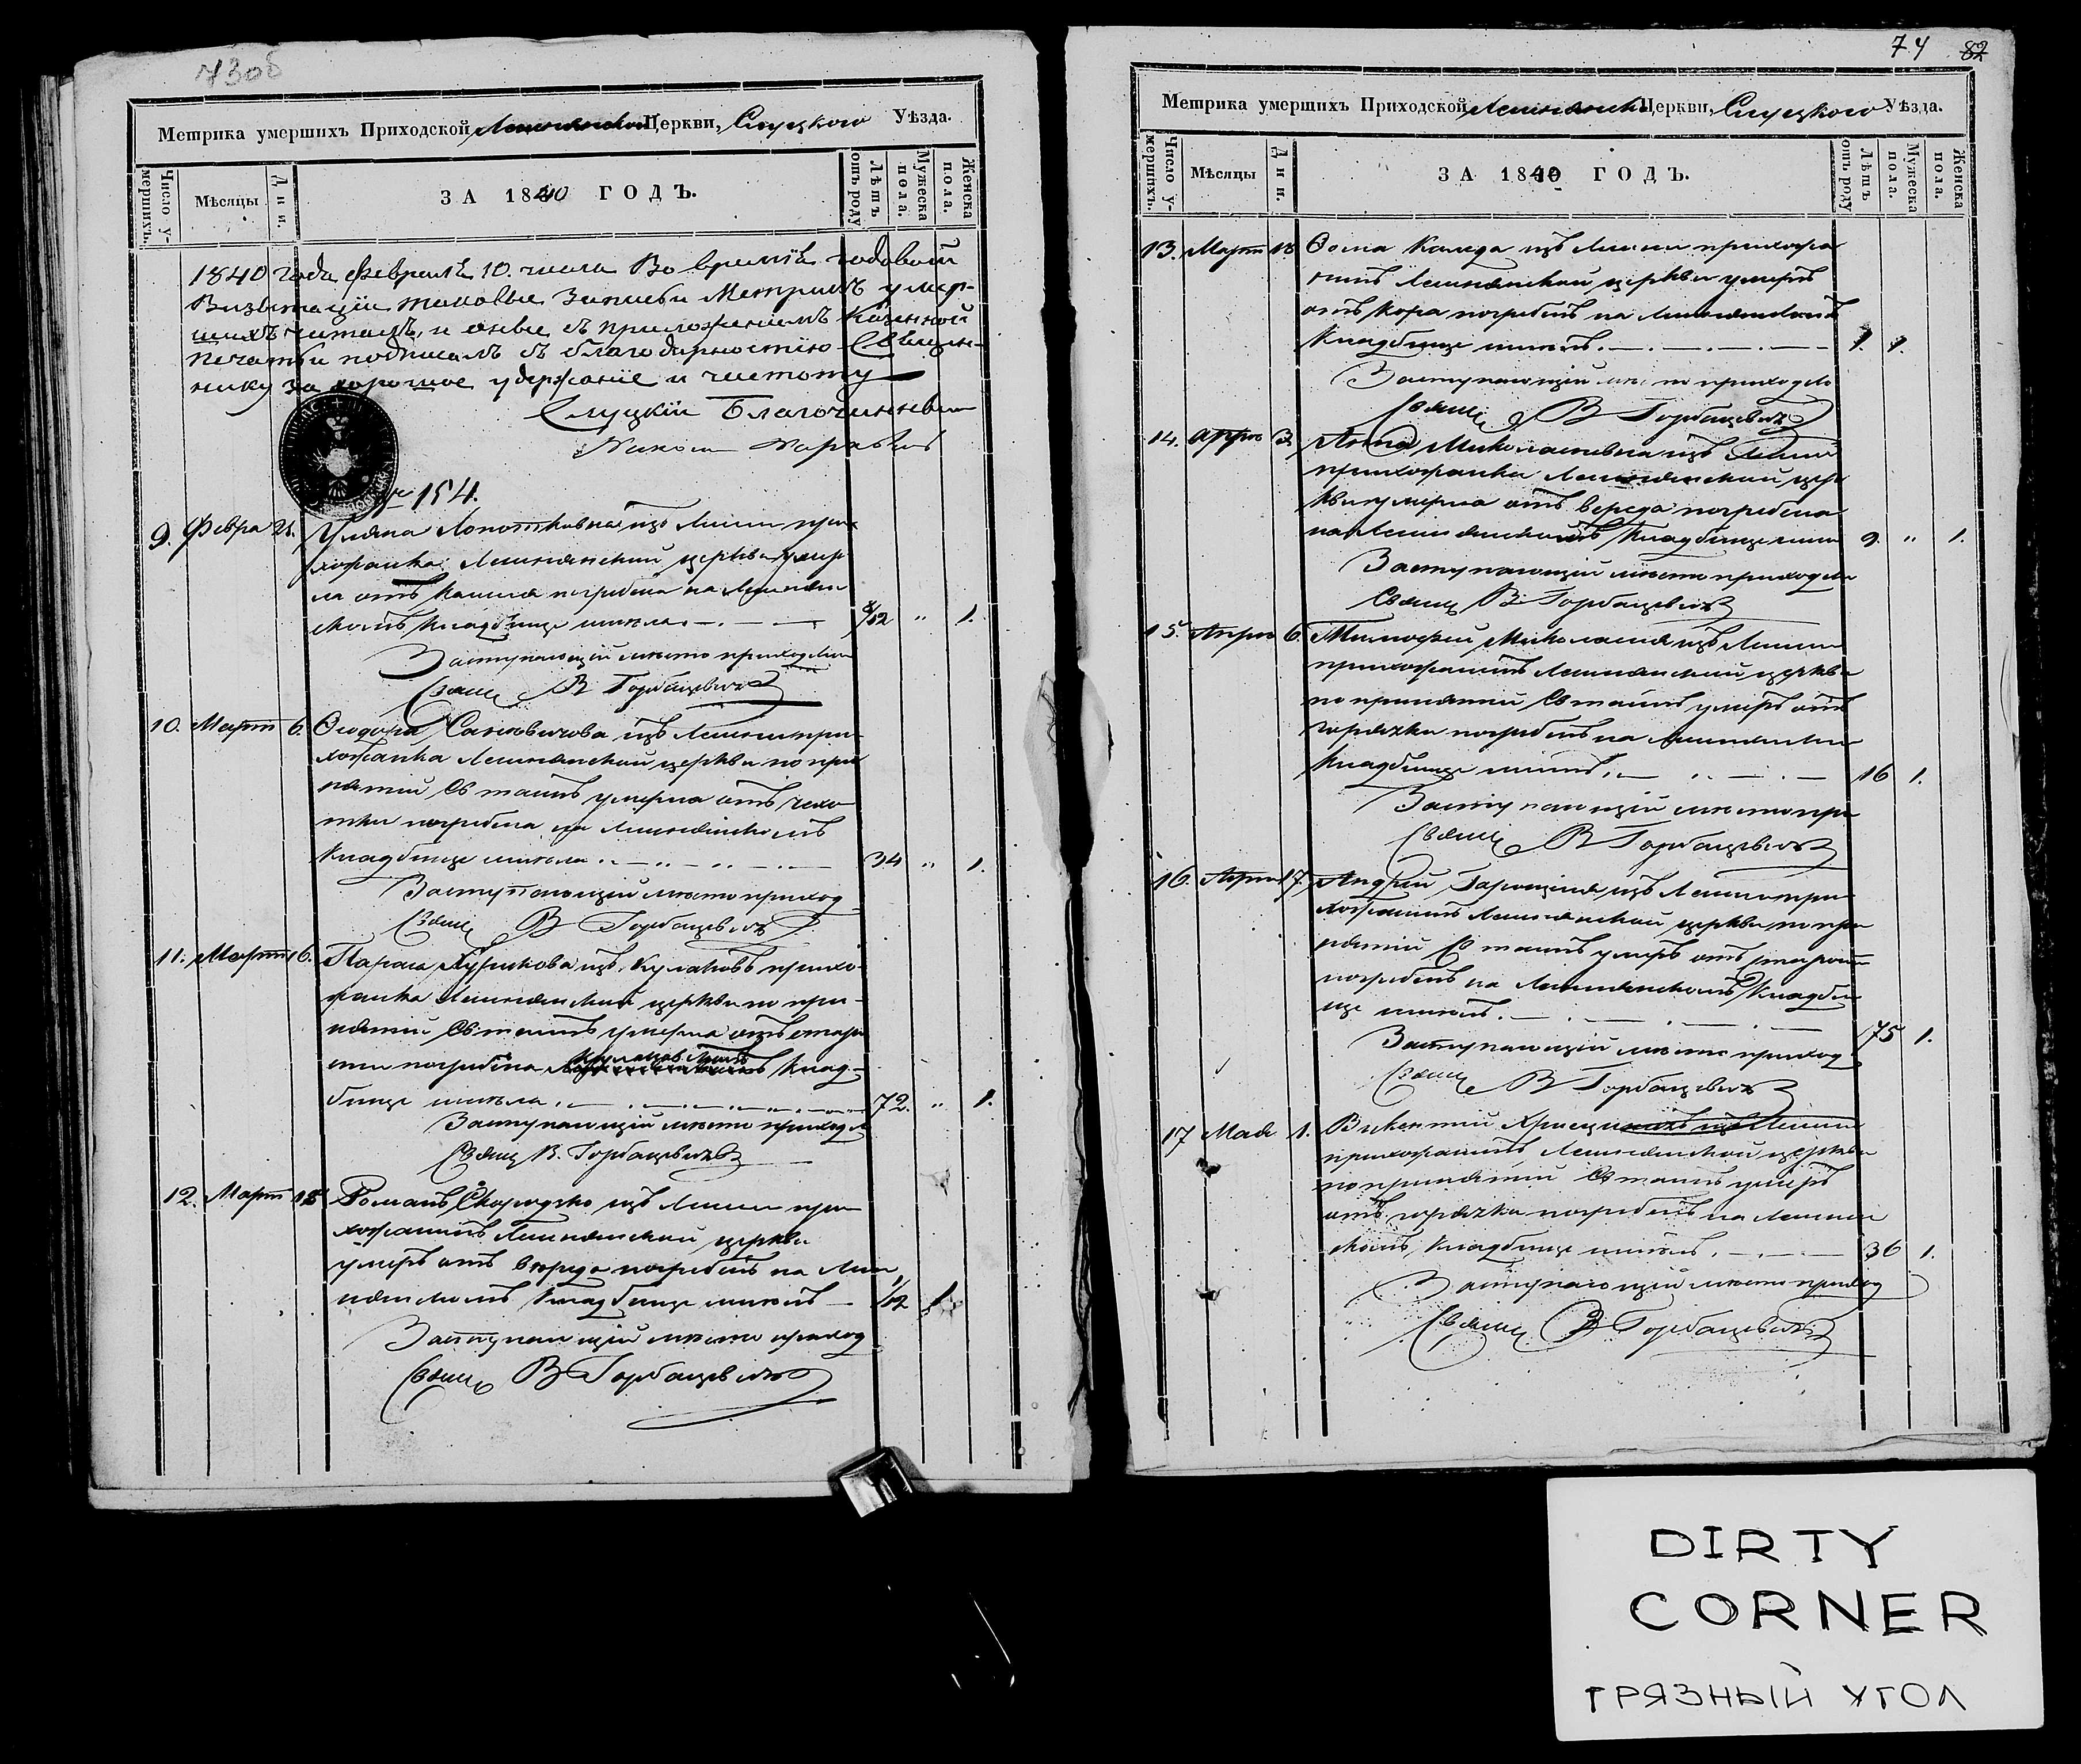 73об
Метрика умершихъ Приходской Лешнянской Церкви, Слуцкого Уѣзда.
Число умершихъ.
Мѣсяцы
Дни.
ЗА 1840 ГОДЪ.
Лѣтъ отъ роду
Мужеска пола.
Женска пола.
1840 года Февраля 10. числа Во время годовой
Визытации таковые Записи Метрикъ умер-
шихъ читалъ, и оные съ приложениемъ Казенной
Печатьи подписалъ съ благодарностію Священ-
нику за хорошое удержаніе и чистоту
Слуцкій Благочинный
№ 154.
9. Февра 21. Уляна из Лешни при
хожанка Лешнянской церкви умер
ла отъ кашля погребена на Лешнян
скомъ кладбище имѣла 1.
Заступающій мѣсто приходск
Свящ В Горбацевичъ
10. Март 6. Ѳеодора Санковичова изъ Лешни при-
хожанка Лешнянской церкви по при
нятіи Св таинъ умерла отъ чахо
тки погребена на Лешнянскомъ
Кладбище имѣла 34 „ 1.
Заступающій мѣсто приход
Свящ В Горбацевичъ
11. Март 16. изъ Кулаковъ прихо-
жанка Лешнянской церкви по при-
нятіи Св таинъ умерла отъ старо
сти погребена Клад-
бище имѣла 72. „ 1.
Заступающій мѣсто приходск
Свящ В. Горбацевичъ
12. Март Романъ изъ Лешни при
хожанинъ Лешнянской церкви
умеръ отъ вереда погребенъ на Леш
нянскомъ Кладбище имѣлъ 1/12 1
Заступающій мѣсто приход
Свящ В Горбацевичъ
74 82
Метрика умершихъ Приходской Лешнянской Церкви, Слуцкого Уѣзда.
Число умершихъ.
Мѣсяцы
Дни.
ЗА 1840 ГОДЪ.
Лѣтъ отъ роду
Мужеска пола.
Женска пола.
13. Март 18 Ѳома Каляда изъ Лешни прихожа
нинъ Лешнянской церкви умеръ
отъ кора погребенъ на Лешнянскомъ
Кладбище имѣлъ 1. 1.
Заступающій мѣсто приходск
Свящ В Горбацевичъ
14. 3 Анна изъ Лешни
прихожанка Лешнянской цер
кви умерла отъ вереда погребена
на Лешнянскомъ Кладбище имѣла 9. „ 1.
Заступающій мѣсто приходск
Свящ В Горбацевичъ
15. Апрѣл 6. Тимофей изъ Лешни
прихожанинъ Лешнянской церкви
по принятіи Св таинъ умеръ отъ
горячки погребенъ на Лешнянском
Кладбище имѣлъ 16 1.
Заступающій мѣсто при
Свящ В Горбацевичъ
16. Апрѣл 17. Андрей изъ Лешни при
хожанинъ Лешнянской церкви по при
нятіи Св таинъ умеръ отъ старости
погребенъ на Лешнянскомъ Кладби
ще имѣлъ. 75 1.
Заступающій мѣсто приход
Свящ В Горбацевичъ
17 Мая 1. Викентий изъ Лешни
прихожанинъ Лешнянской церкви
по принятіи Св таинъ умеръ
отъ горячки погребенъ на Лешнян
скомъ Кладбище имѣлъ. 36 1.
Заступающій мѣсто приход
Свящ В Горбацевичъ
DIRTY
CORNER
ГРЯЗНЫЙ УГОЛ